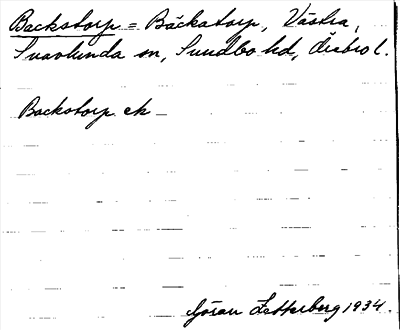 Backstorp = Bäckatorp, Västra,
Svavlunda sn, Sundbo hd, Örebro l.
Backstorp ek
Göran Zetterberg 1934.